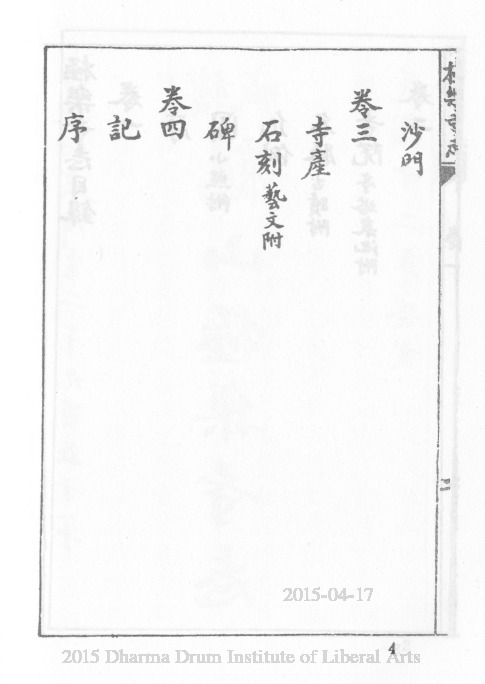 沙門
卷三
寺產
石刻 藝文附
碑
卷四
記
序
2015-04-17
4
2015 Dharma Drum Institute of Liberal Arts